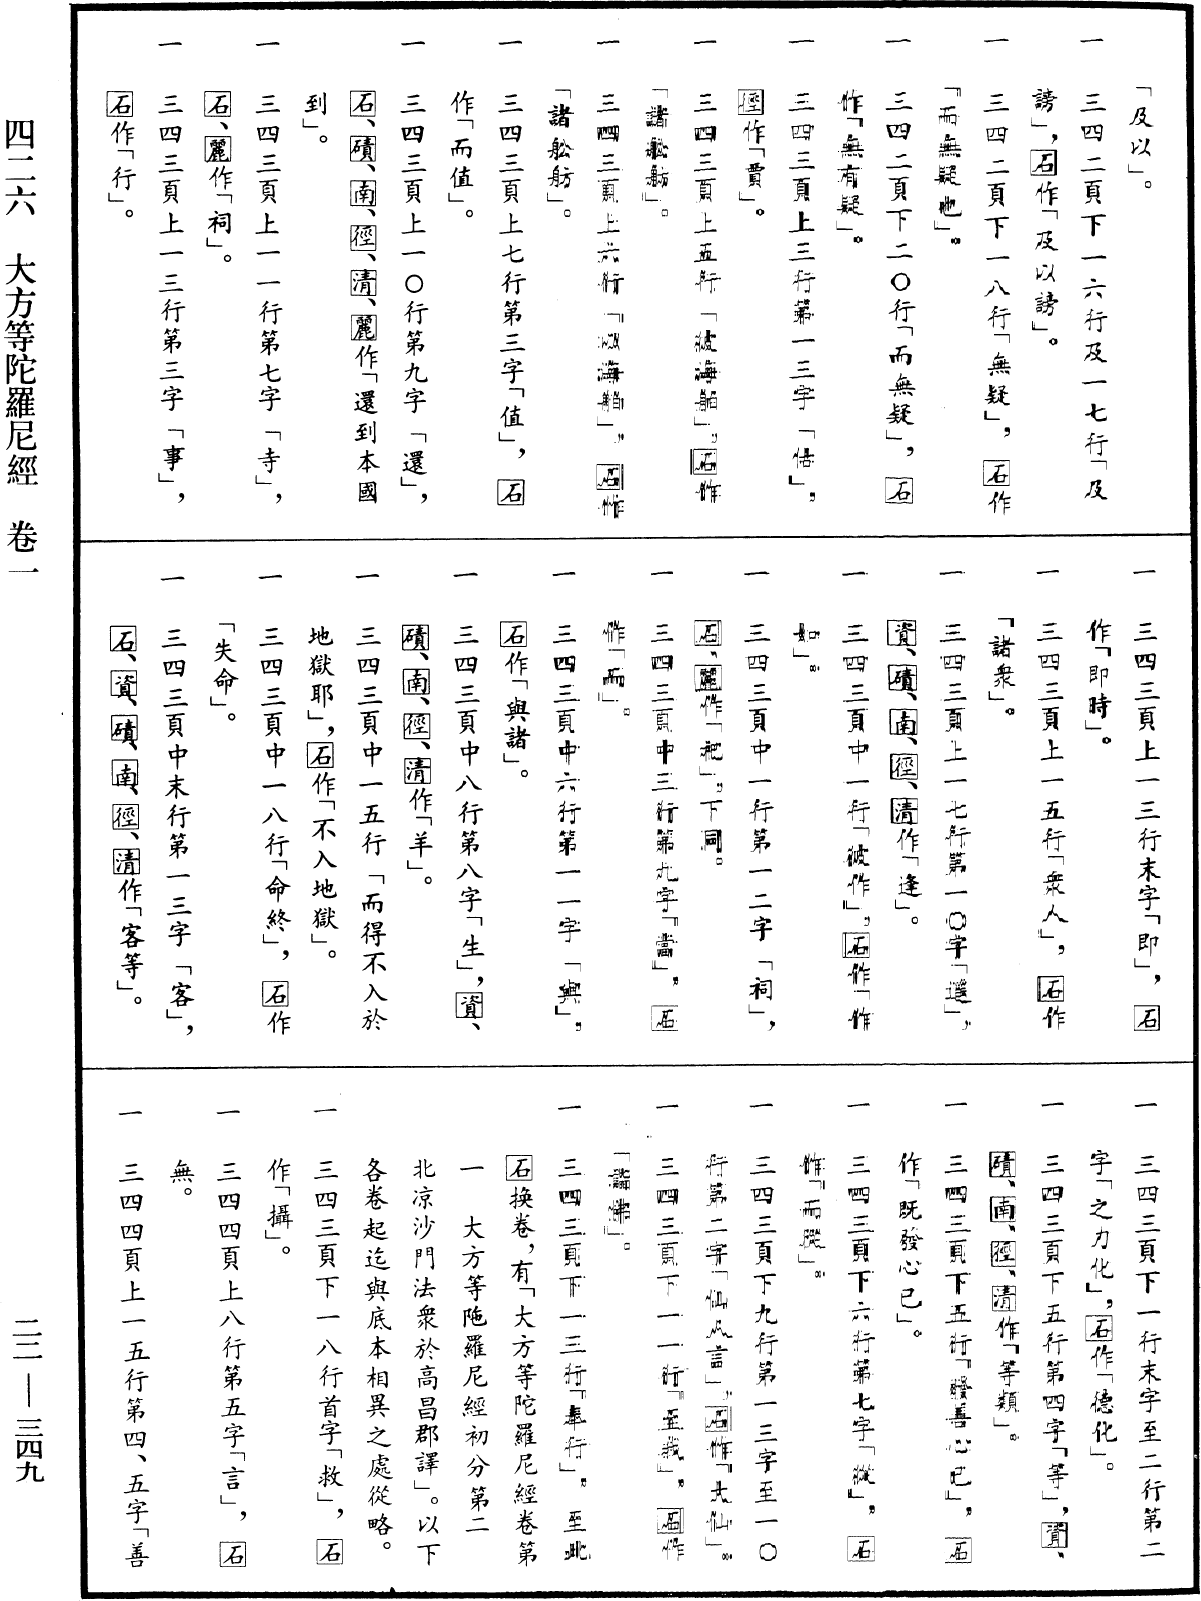 「及以」。
一　三四二頁下一六行及一七行「及
謗」，石作「及以謗」。
一　三四二頁下一八行「無疑」，石作
「而無疑也」。
一　三四二頁下二〇行「而無疑」，石
作「無有疑」。
一　三四三頁上三行第一三字「估」，
徑作「賈」。
一　三四三頁上五行「彼海船」，石作
「諸舩舫」。
一　三四三頁上六行「海船」，石作
「諸舩舫」。
一　三四三頁上七行第三字「值」，石
作「而值」。
一　三四三頁上一〇行第九字「還」，
石、磧、南、徑、清、麗作「還到本國
到」。
一　三四三頁上一一行第七字「寺」，
石、麗作「祠」。
一　三四三頁上一三行第三字「事」，
石作「行」。
一　三四三頁上一三行末字「即」，石
作「即時」。
一　三四三頁上一五行「衆人」，石作
「諸衆」。
一　三四三頁上一七行第一〇字「遥」，
資、磧、南、徑、清作「逢」。
一　三四三頁中一行「彼作」，石作「作
如」。
一　三四三頁中一行第一二字「祠」，
石、麗作「祀」，下同。
一　三四三頁中三行第九字「當」，石
作「而」。
一　三四三頁中六行第一一字「與」，
石作「與諸」。
一　三四三頁中八行第八字「生」，資、
磧、南、徑、清作「羊」。
一　三四三頁中一五行「而得不入於
地獄耶」，石作「不入地獄」。
一　三四三頁中一八行「命終」，石作
「失命」。
一　三四三頁中末行第一三字「客」，
石、資、磧、南、徑、清作「客等」。
一　三四三頁下一行末字至二行第二
字「之力化」，石作「德化」。
一　三四三頁下五行第四字「等」，資、
磧、南、徑、清作「等類」。
一　三四三頁下五行「發善心已」，石
作「既發心已」。
一　三四三頁下六行第七字「從」，石
作「而從」。
一　三四三頁下九行第一三字至一〇
行第二字「仙人言」，石作「大仙」。
一　三四三頁下一一行「至我」，石作
「詣佛」。
一　三四三頁下一三行「奉行」，至此
石換卷，有「大方等陀羅尼經卷第
一　大方等陁羅尼經初分第二
北凉沙門法衆於高昌郡譯」。以下
各卷起迄與底本相異之處從略。
一　三四三頁下一八行首字「救」，石
作「攝」。
一　三四四頁上八行第五字「言」，石
無。
一　三四四頁上一五行第四、五字「善
四二六　大方等陀羅尼經　卷一
二二—三四九